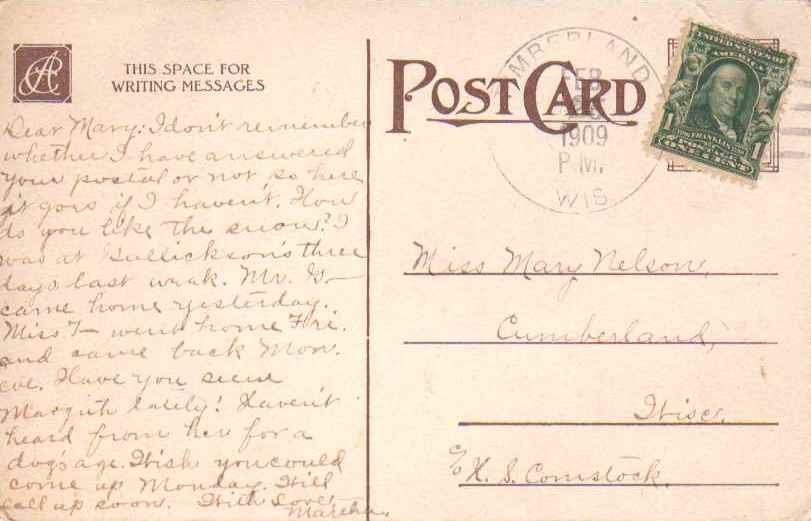 THIS SPACE FOR
WRITING MESSAGES
Dear Mary: I don't remember
whether I have answered
your postal or not so here
it goes if I haven't. How
do you like the snow? I
was at Gullickson's three
days last week. Mr. G—
came home yesterday.
Miss T— went home Fri.
and came back Mon.
eve. Have you seen
lately? Haven't
heard from her for a
dog's age. Wish you could
come up Monday. Will
call up soon. With Love
Martha.
POST CARD
CUMBERLAND
FEB
1909
P.M.
WIS.
UNITED STATES OF
AMERICA
1 FRANKLIN 1
ONE CENT
Miss Mary Nelson,
Cumberland,
Wisc.
c/o H. S. Comstock.